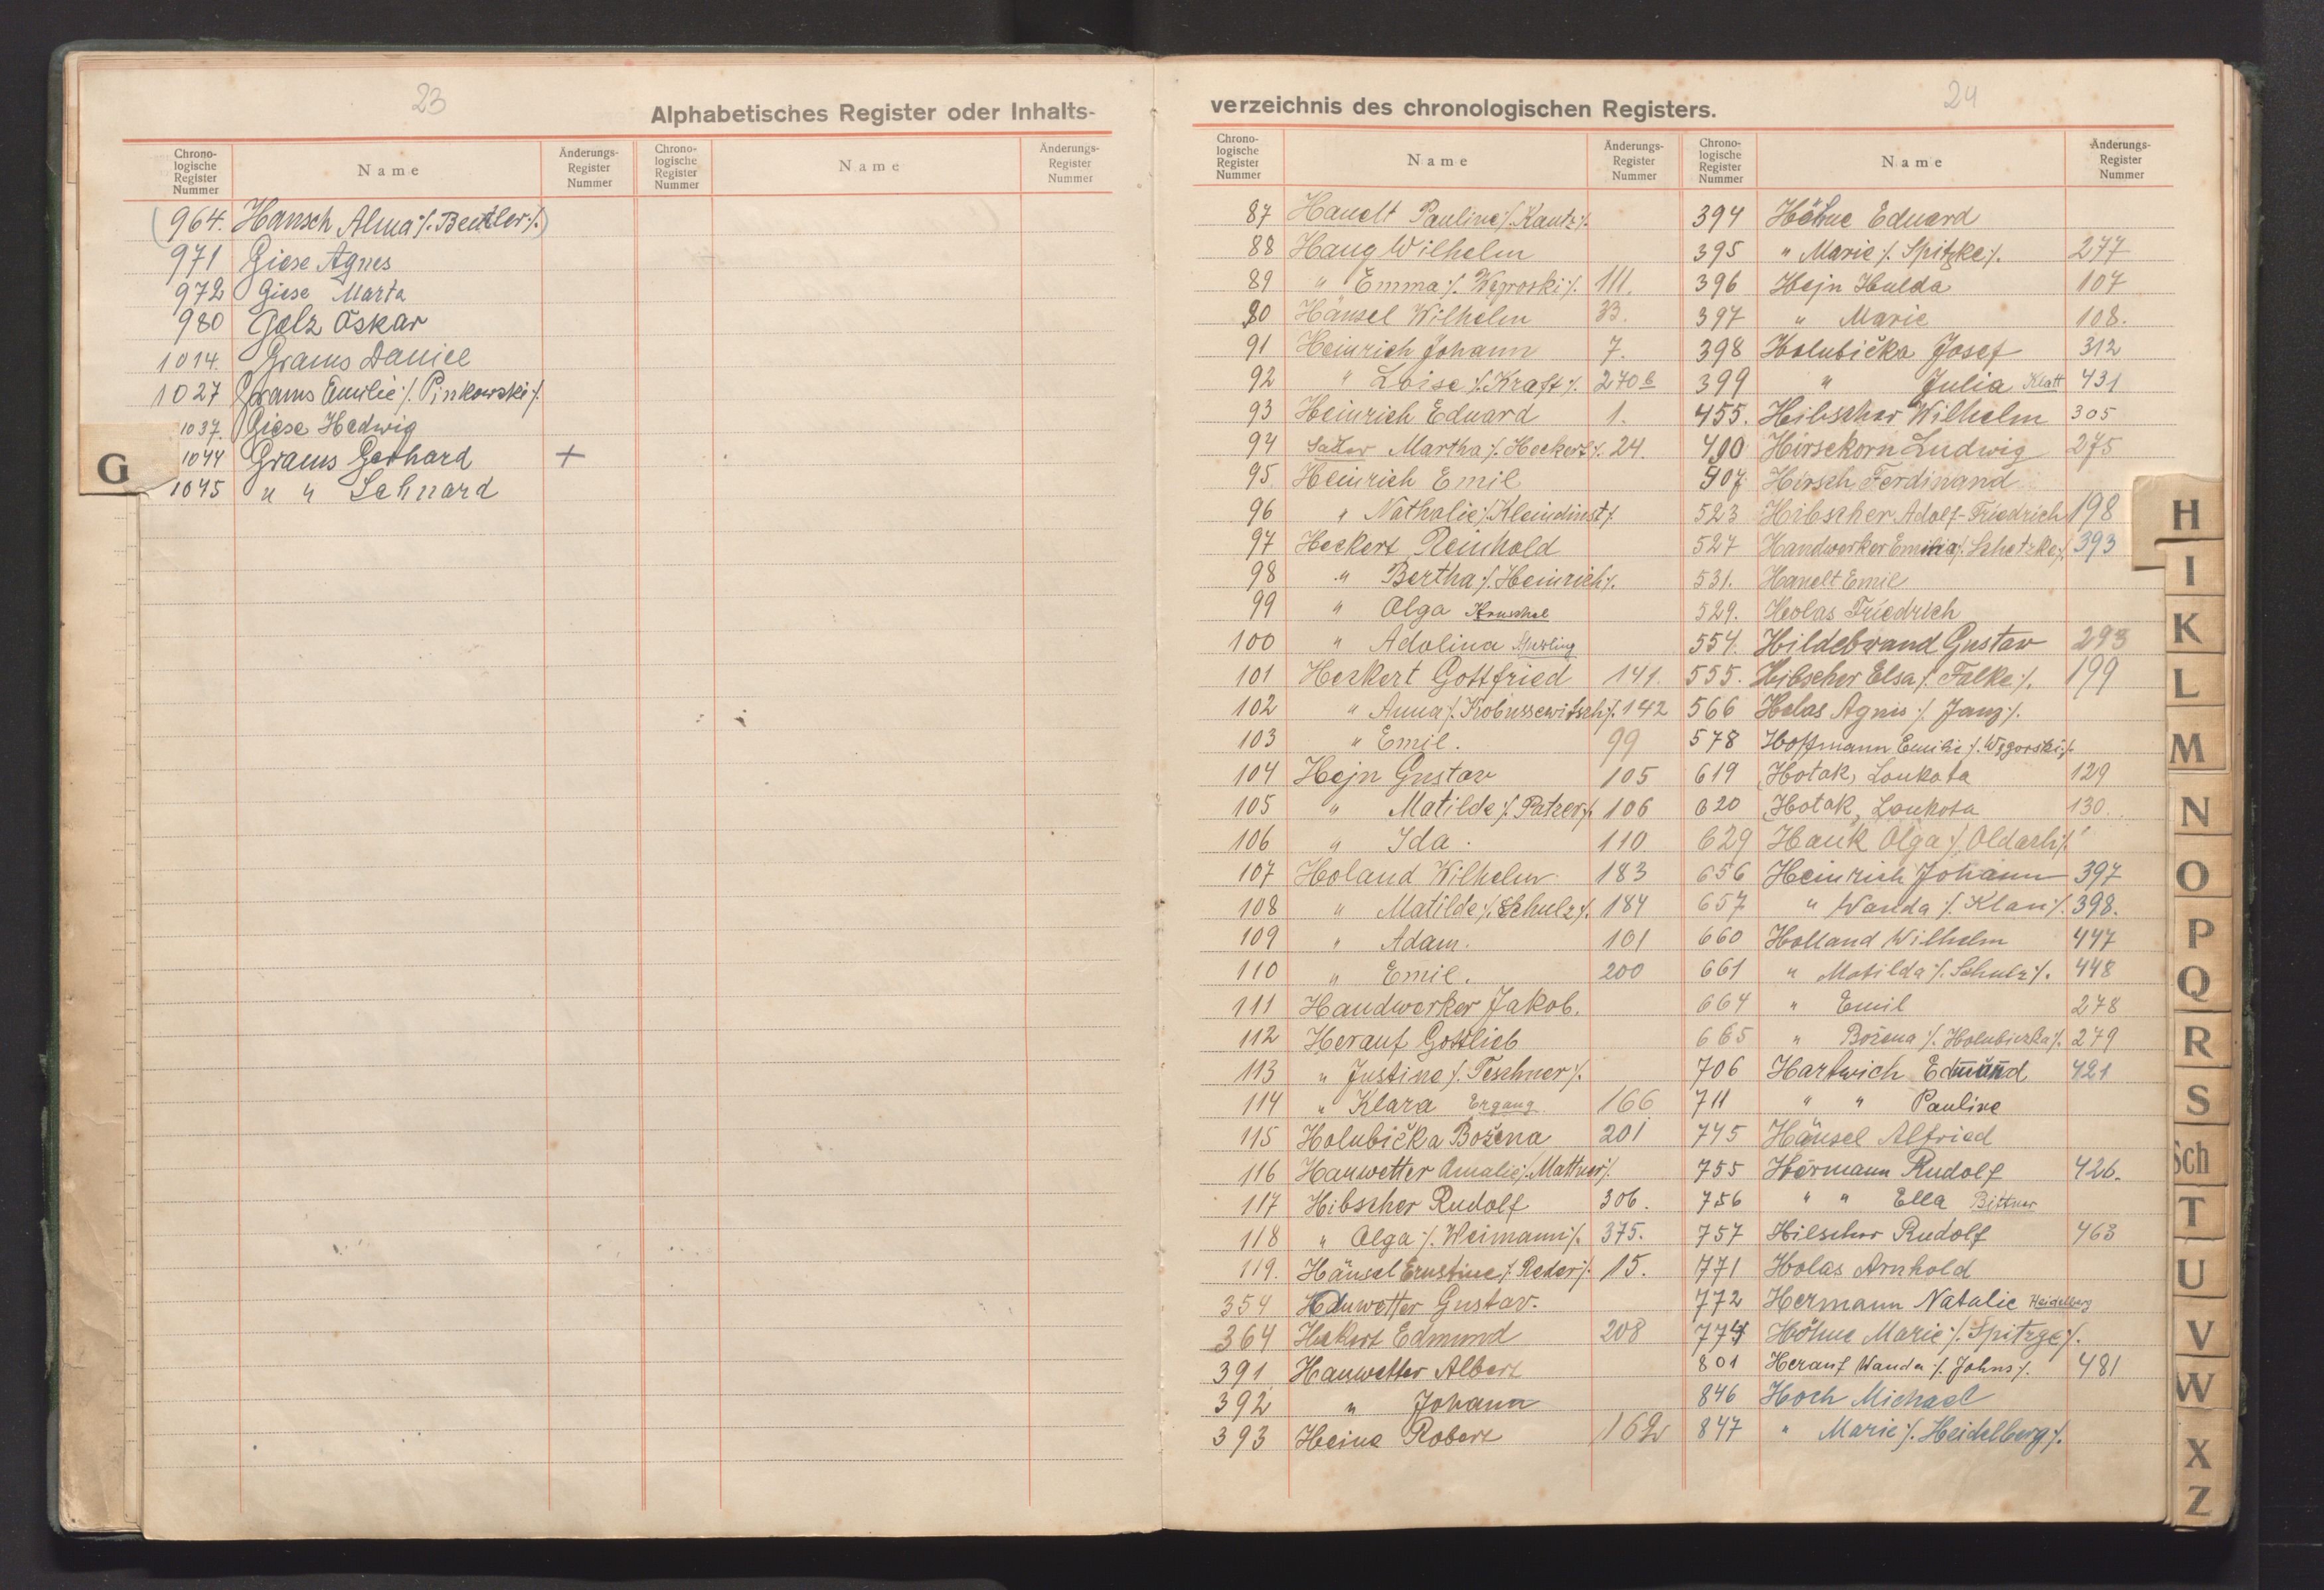 23
Alphabetisches Register oder Inhalts-
Chrono-
logische
Register
Nummer
Name
Änderungs-
Register
Nummer
Chrono-
logische
Register
Nummer
Name
Änderungs-
Register
Nummer
(964. Hansch Alma /. Beutler /.)
971 Giese Agnes
972 Giese Marta
980 Golz Oskar
1014. Grams Daniel
1027 Grams Emilie /. Pinkowski /.
1037. Giese Hedwig
1044 Grams Gerhard +
1045 " " Lehnard
G
24
verzeichnis des chronologischen Registers.
Chrono-
logische
Register
Nummer
Name
Änderungs-
Register
Nummer
Chrono-
logische
Register
Nummer
Name
Änderungs-
Register
Nummer
87 Hanelt Pauline /. Kautz /.
88 Haug Wilhelm
89 " Emma /. Wegroski /. 111.
90 Hänsel Wilhelm 33.
91 Heinrich Johann 7.
92 " Loise /. Kraft /. 270 b
93 Heinrich Eduard 1.
94 Martha /. Heckert /. 24.
95 Heinrich Emil
96 " Nathalie /. Kleindinst /.
97 Heckert Reinhold
98 " Bertha /. Heinrich /.
99 " Olga Kruschel
100 " Adolina
101 Heckert Gottfried 141.
102 " Anna /. Kobussewitsch /. 142
103 " Emil. 99
104 Hejn Gustav 105
105 " Matilde /. Patzer /. 106
106 " Ida. 110
107 Holand Wilhelm 183
108 " Matilde /. Schulz /. 184
109 " Adam. 101
110 " Emil. 200
111 Handwerker Jakob.
112 Herauf Gottlieb
113 " Justine /. Teschner /.
114 " Klara Ergang 166
115 Holubička Božena 201
116 Hauwetter Amalie /. Mattner /.
117 Hibscher Rudolf 306.
118 " Olga /. Weimann /. 375.
119. Hänsel Ernstine /. Reder /. 15.
354 Hauwetter Gustav.
364 Hekert Edmund 208
391 Hauwetter Albert
392 " Johann
393 Heine Robert 162
394 Höhne Eduard
395 " Marie /. Spitzke /. 277
396 Hejn Hulda 107
397 " Marie 108.
398 Holubička Josef 312
399 " Julia Klatt 431
455. Hibscher Wilhelm 305
490 Hirsekorn Ludwig 275
507 Hirsch Ferdinand
523 Hibscher Adolf-Friedrich 198
527 Handwerker Emilia /. Schetzke /. 393
531. Hanelt Emil
529. Heolas Friedrich
554. Hildebrand Gustav 293
555. Hibscher Elsa /. Falke /. 199
566 Holas Agnes /. Janz /.
578 Hoffmann Emilie /. Wegorski /.
619 Hotak, Loukota 129
620 Hotak, Loukota 130.
629 Hauk Olga /. Oldach /.
656 Heinrich Johann 397
657 " Wanda /. Klan /. 398.
660 Holland Wilhelm 447
661 " Matilda /. Schulz /. 448
664 " Emil 278
665 " Božena /. Holubiczka /. 279
706 Hartwich Edmund 421
711 " " Pauline
745 Hänsel Alfried
755 Hörmann Rudolf 426.
756 " " Ella Bittner
757 Hilscher Rudolf 463
771 Holas Arnhold
772 Hermann Natalie Heidelberg
774 Höhne Marie /. Spitzge /.
801 Herauf Wanda /. Johns /. 481
846 Hoch Michael
847 " Marie /. Heidelberg /.
H
I
K
L
M
N
O
P
Q
R
S
Sch
T
U
V
W
X
Z